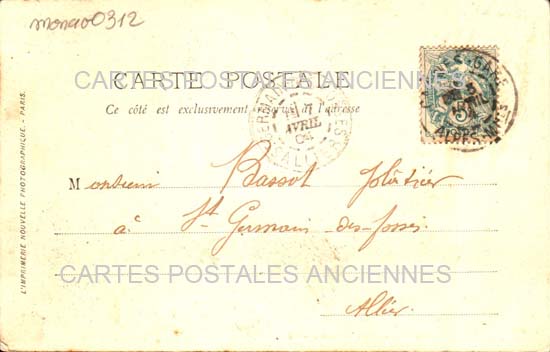 monaco0312
CARTE POSTALE
CARTES POSTALES ANCIENNES
Ce côté est exclusivement réservé à l'adresse
AVRIL
ALLIER
Monsieur Bassot plâtrier
à St Germain-des-fossés
CARTES POSTALES ANCIENNES
Allier
L'IMPRIMERIE NOUVELLE PHOTOGRAPHIQUE. - PARIS.